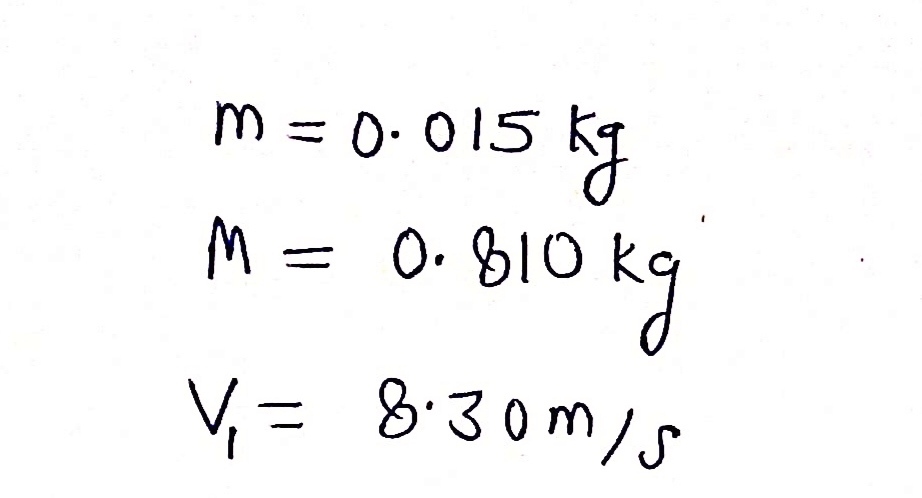 m = 0.015 kg
M = 0.810 kg
V₁ = 8.30 m/s